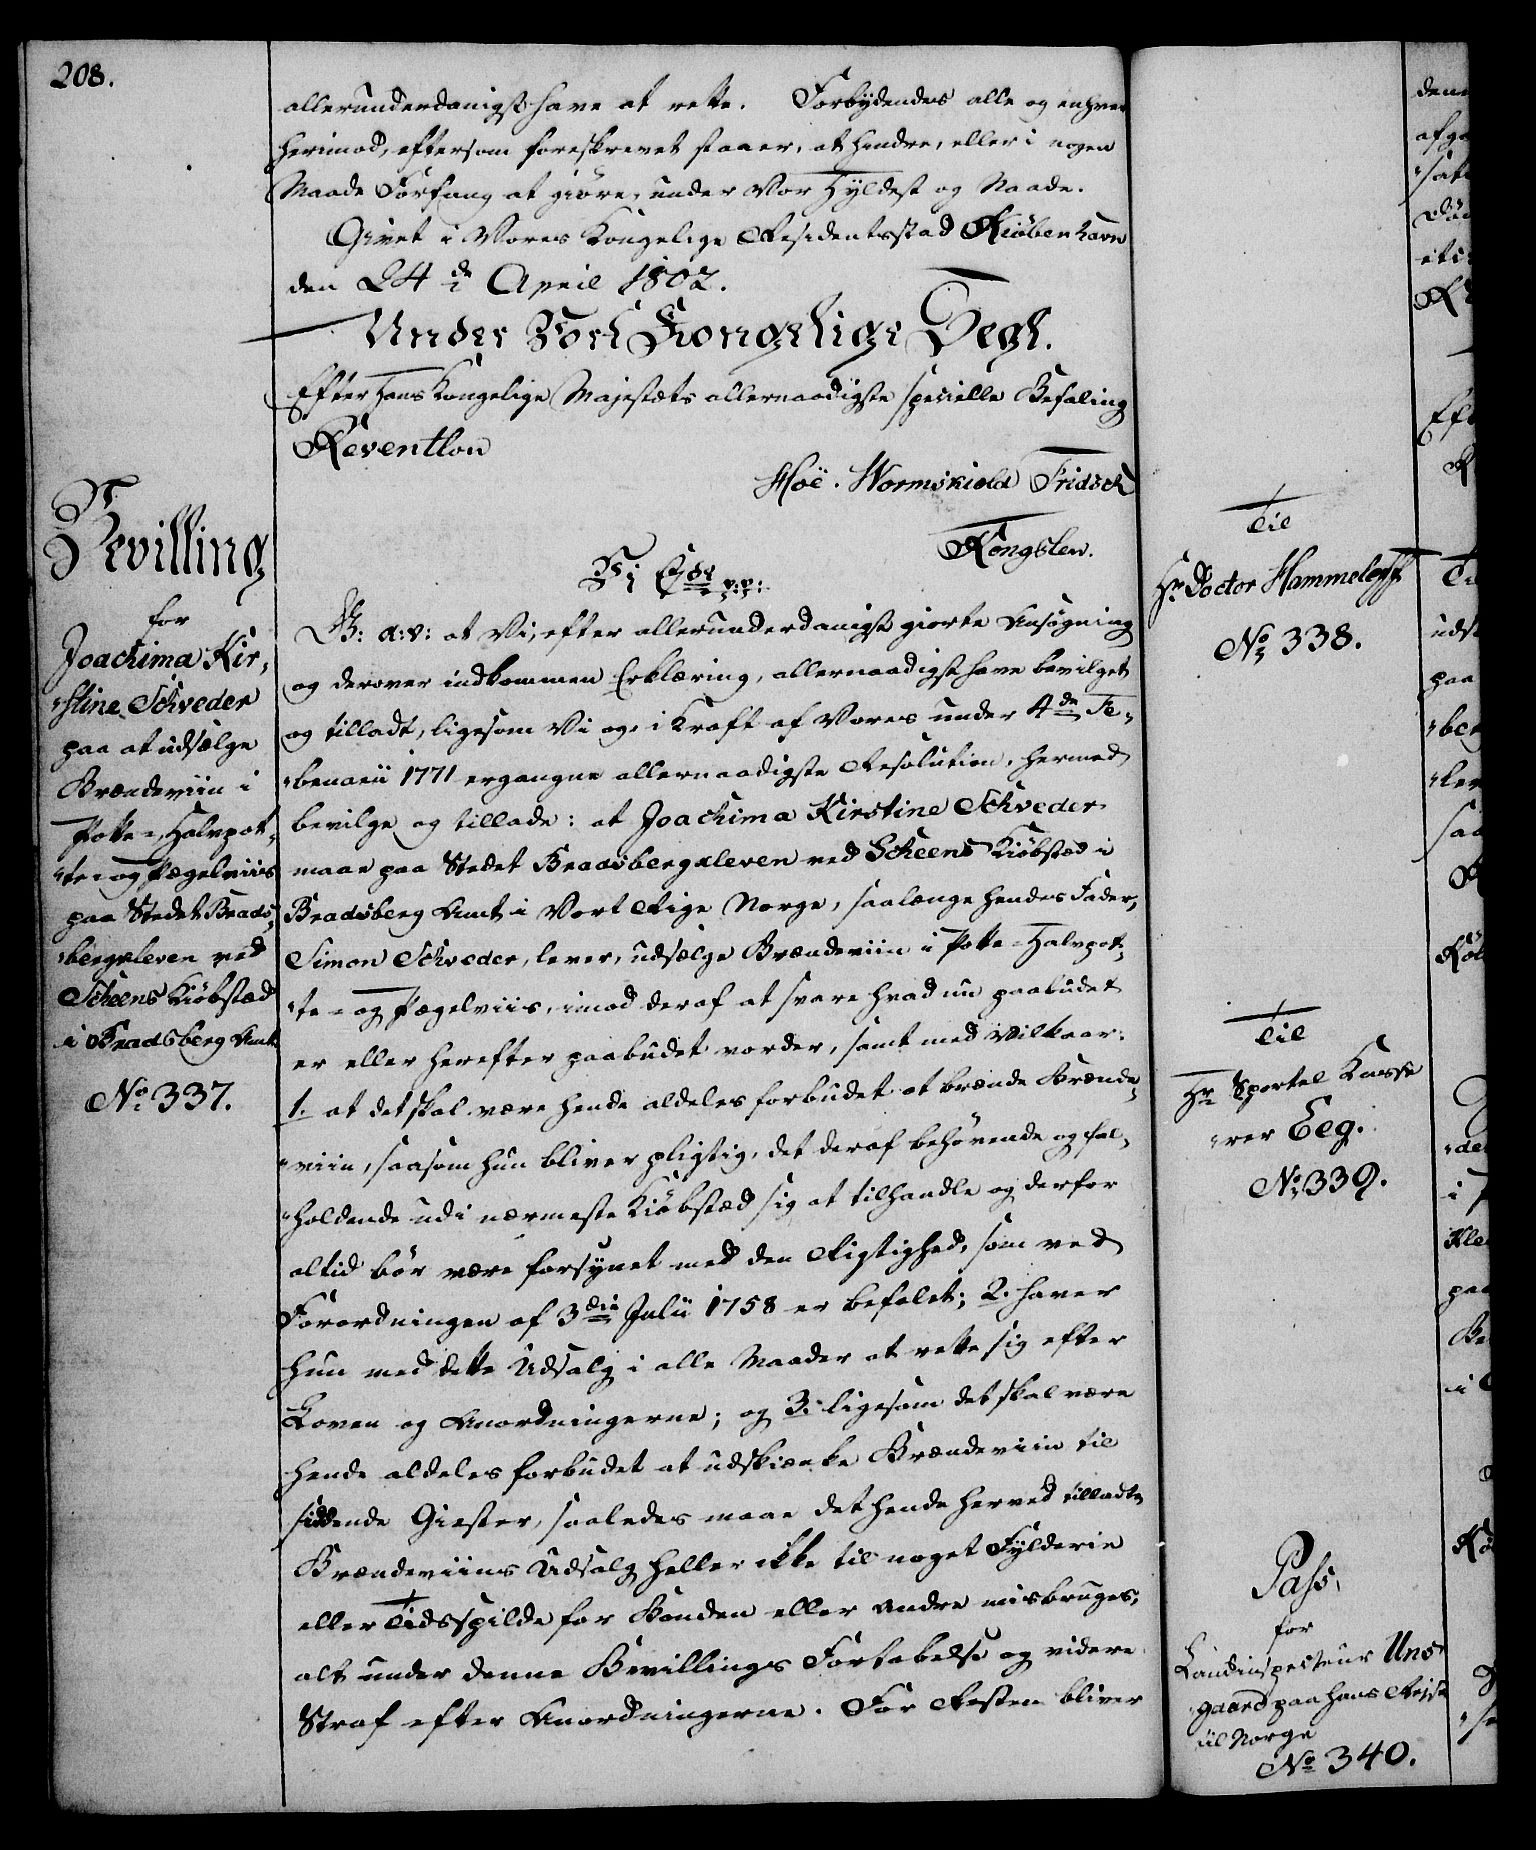 208.
allerunderdanigst have at rette. Forbydendes alle og enhver
herimod, eftersom foreskrevet staaer, at hindre, eller i nogen
Maade Forfang at giöre, under Vor Hyldest og Naade.
Givet i Vores Kongelige Residentsstad Kiöbenhavn
den 24de April 1802.
Under Vort Kongelige Segl.
Efter Hans Kongelige Majestæts allernaadigste specielle Befaling
Reventlou
Hoë. Wormskiold Fridsch
Kongslew.
Bevilling
for
Joachima Kir,
"stine Schveder
paa at udsælge
Brændeviin i
Potte- Halvpot,
"te- og Pægelviis
paa Stedet Brads,
"bergkleven ved
Scheens Kiöbstæd
i Bradsberg Amt.
No. 337.
Vi C 7de p:p:
G: a: v: at Vi, efter allerunderdanigst giorte Ansögning
og derover indkommen Erklæring, allernaadigst have bevilget
og tilladt, ligesom Vi og i Kraft af Vores under 4de Fe,
"bruarii 1771 ergangne allernaadigste Resolution, hermed
bevilge og tillade: at Joachima Kirstine Schveder
maae paa Stedet Bradsbergkleven ved Scheens Kiöbstæd i
Bradsberg Amt i Vort Rige Norge, saalænge hendes Fader,
Simon Schveder, lever, udsælge Brændeviin i Potte- Halvpot,
"te- og Pægelviis, imod deraf at svare hvad nu paabudet
er eller herefter paabudet vorder, samt med Vilkaar:
1. at det skal være hende aldeles forbudet at brænde Brænde,
"viin, saasom hun bliver pligtig, det deraf behövende og fal,
"holdende udi nærmeste Kiöbstæd sig at tilhandle og derfor
altid bör være forsynet med den Rigtighed, som ved
Forordningen af 3die Julii 1758 er befalet; 2. haver
hun med dette Udsalg i alle Maader at rette sig efter
Loven og Anordningerne; og 3. ligesom det skal være
hende aldeles forbudet at udskiænke Brændeviin til
siddende Giester, saaledes maae det hende herved tilladte
Brændeviins Udsalg heller ikke til noget Fylderie
eller Tidsspilde for Bonden eller andre misbruges,
alt under denne Bevillings Fortabelse og videre
Straf efter Anordningerne. For Resten bliver
Til
Hr Doctor Hammeleff
No 338.
Til
Hr Sportel Kasse
"rer Eeg.
No 339.
Pass,
for
Landinspecteur Uns
"gaard paa hans Rejse
til Norge
No 340.